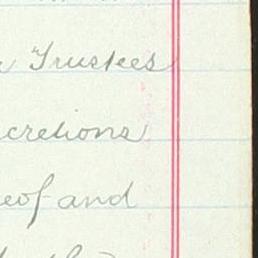 Trustees
cretions
eof and